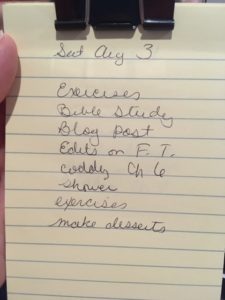 Sat Aug 3
Exercises
Bible Study
Blog Post
Edits on F. T.
Ch 6
shower
exercises
make desserts